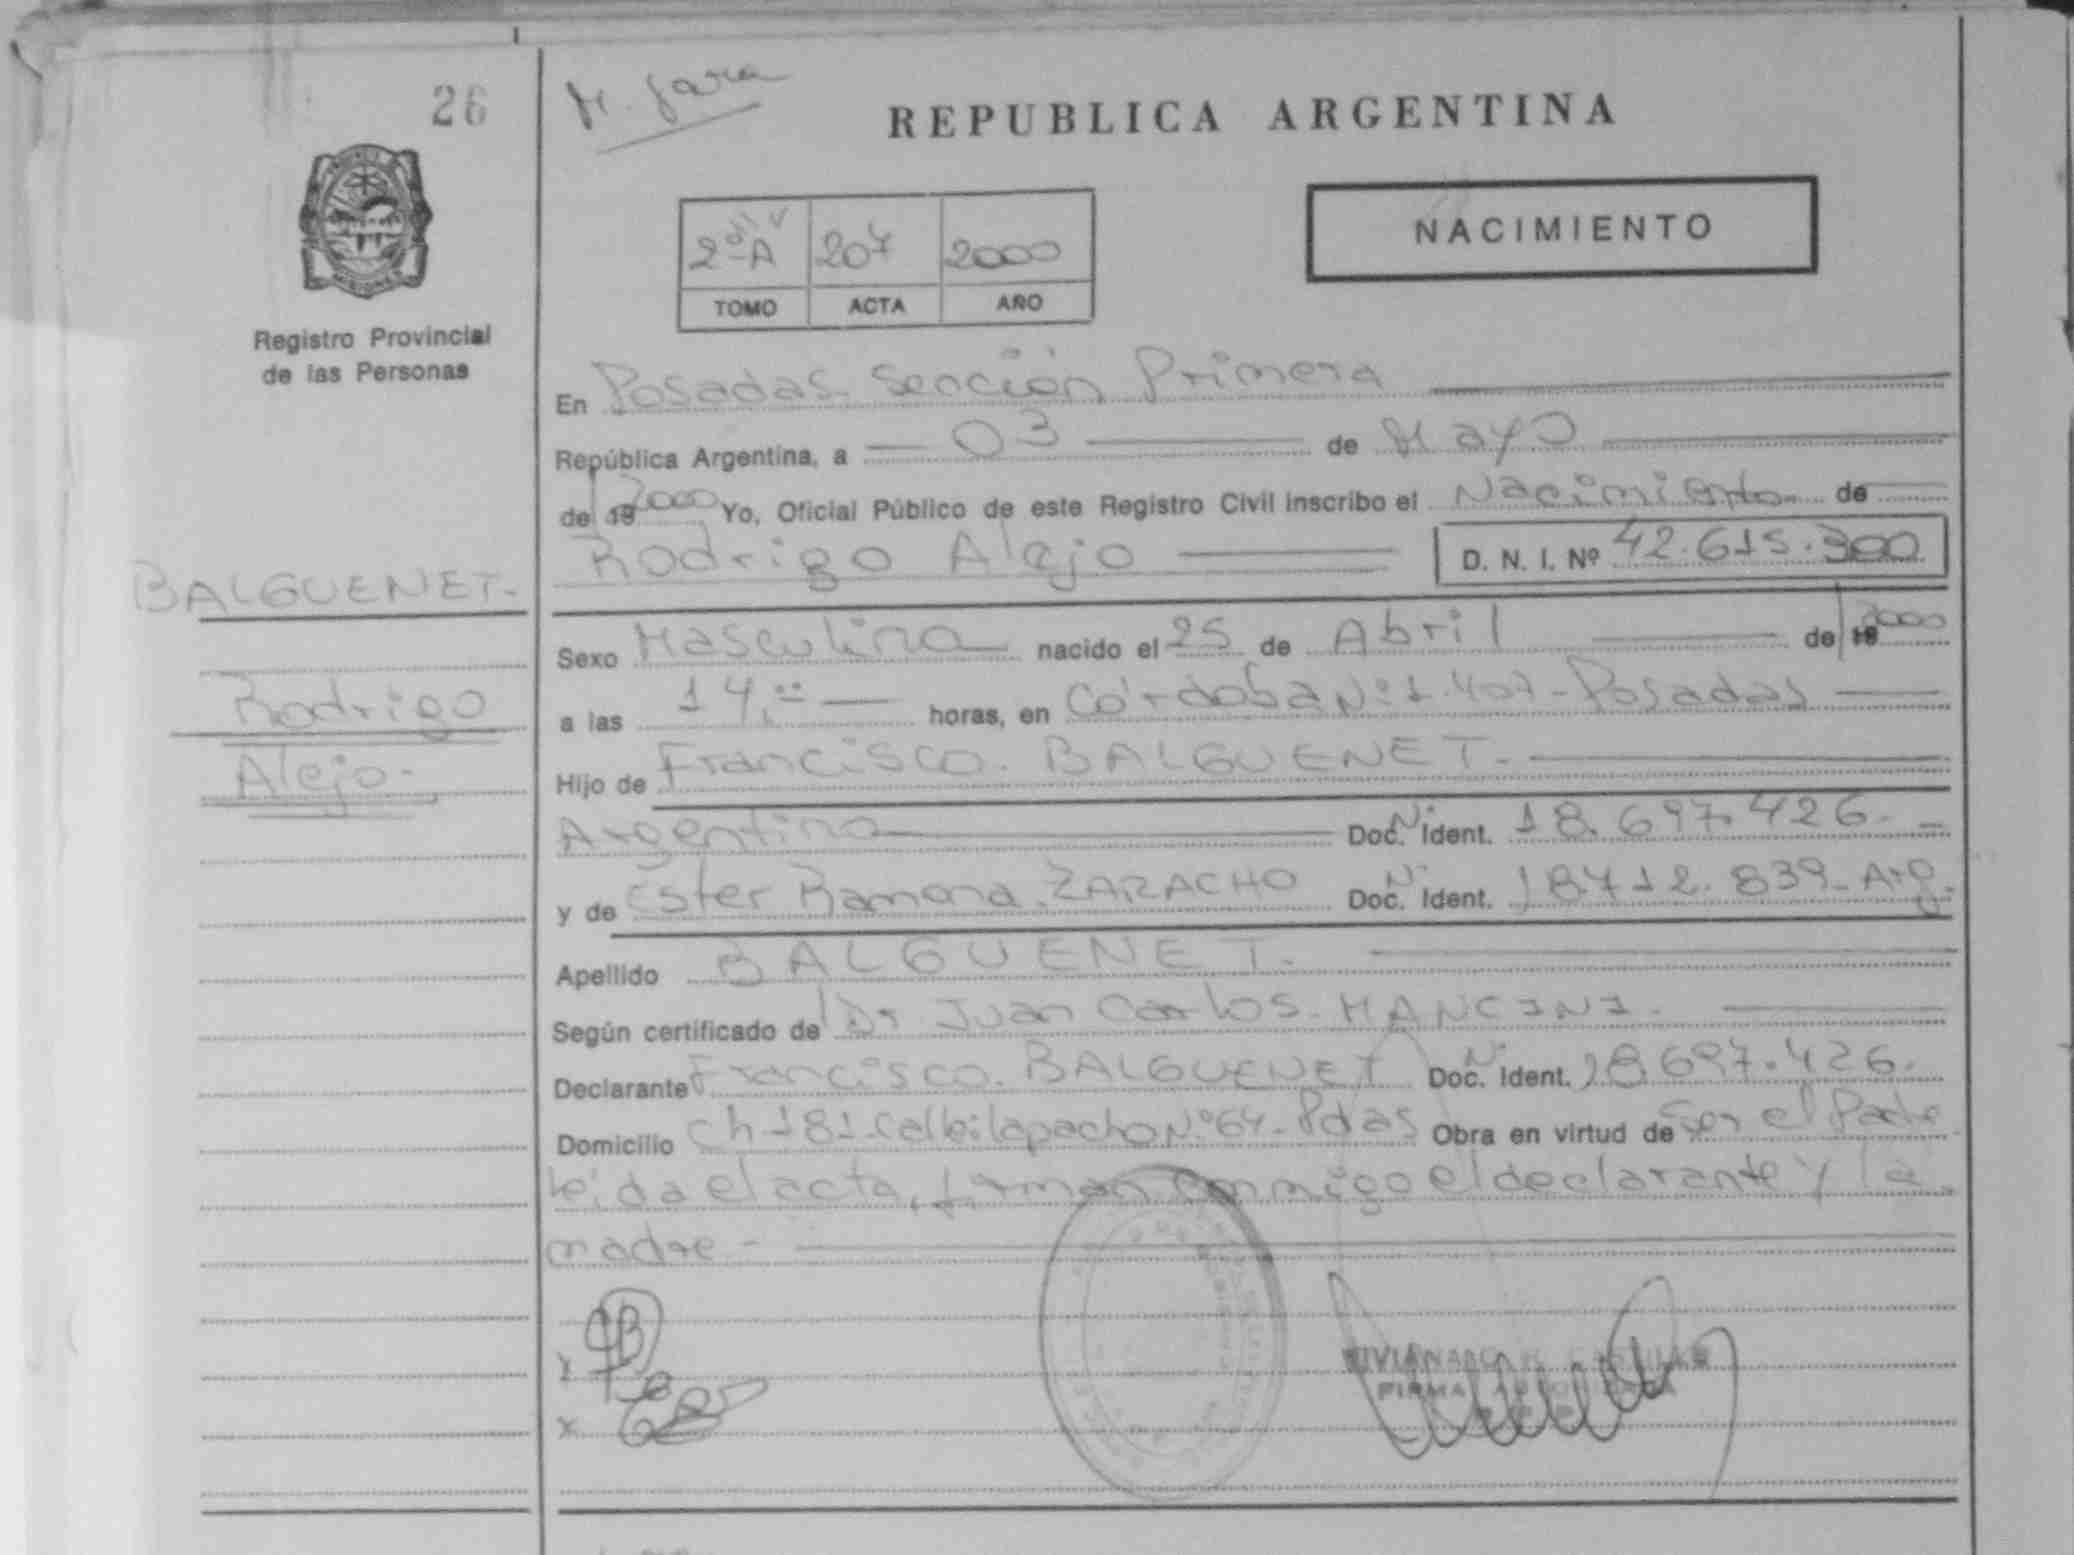 26
REPUBLICA ARGENTINA
NACIMIENTO
2º A 207 2000
TOMO ACTA AÑO
Registro Provincial
de las Personas
En Posadas Sección Primera
República Argentina, a 03 de Mayo
de 19 2000 Yo, Oficial Público de este Registro Civil inscribo el Nacimiento de
Rodrigo Alejo D. N. I. Nº 42.615.300
BALGUENET.
Rodrigo
Alejo.
Sexo Masculino nacido el 25 de Abril de 19 2000
a las 14,00 horas, en Córdoba Nº 1.407 - Posadas
Hijo de Francisco. BALGUENET.
Argentino Doc. Nº Ident. 18.697.426.
y de Ester Ramona ZARACHO Doc. Nº Ident. 18.712.839 - Arg.
Apellido BALGUENET.
Según certificado de Dr. Juan Carlos. MANCINI.
Declarante Francisco. BALGUENET Doc. Nº Ident. 18.697.426.
Domicilio Ch 181 - Calle lapacho Nº 64 - Pdas Obra en virtud de Ser el Padre
leída el acta, firman conmigo el declarante y la
madre -
FIRMA